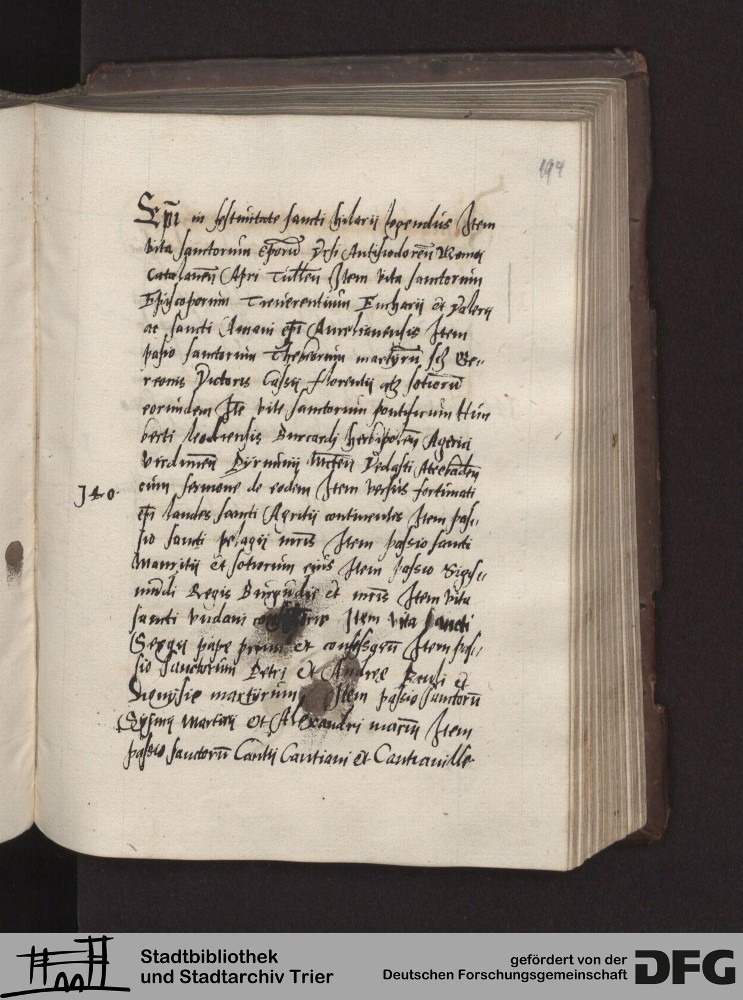 194
Epi in festiuitate sancti hilarij legendus Item
vita sanctorum eporu Antisiodoreñ
Catalaneñ Apri Tulleñ Item vita sanctorum
Episcoporum Treuerentium Eucharij et Valerij
ac sancti Amani epi Aurelianensis Item
passio sanctorum Thebeorum martyrũ sch Ge-
reonis Victoris Cassij florentij sotiorũ
eorundem Ite vite sanctorum pontificum Hum
berti leodiensis Burcardi herbipoleñ Agerici
Virduneñ Vedasti
140. cum sermone de eodem Item versus fortunati
epi laudes sancti Agritij continentes Item pas-
sio sancti pelagij mris Item passio sancti
Mauritij et sotiorum eius Item passio Sigis-
mundi Regis Burgundie et mris Item vita
sancti vudani confessoris Item vita sancti
Sergij pape primi et Item pas-
sio sanctorum Petri et Andree Pauli et
Dionysie martyrum Item passio sanctorũ
Martirij et Alexandri Item
passio sanctorũ Cantij Cantiani et Cantianille
Stadtbibliothek
und Stadtarchiv Trier
gefördert von der
Deutschen Forschungsgemeinschaft DFG